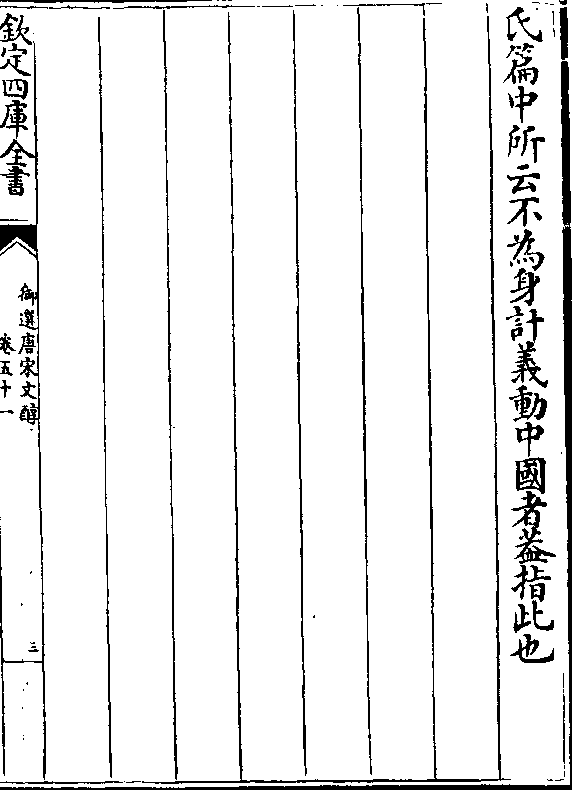 氏篇中所云不為身計義動中國者葢指此也
欽定四庫全書
御選唐宋文醇
卷五十一
三